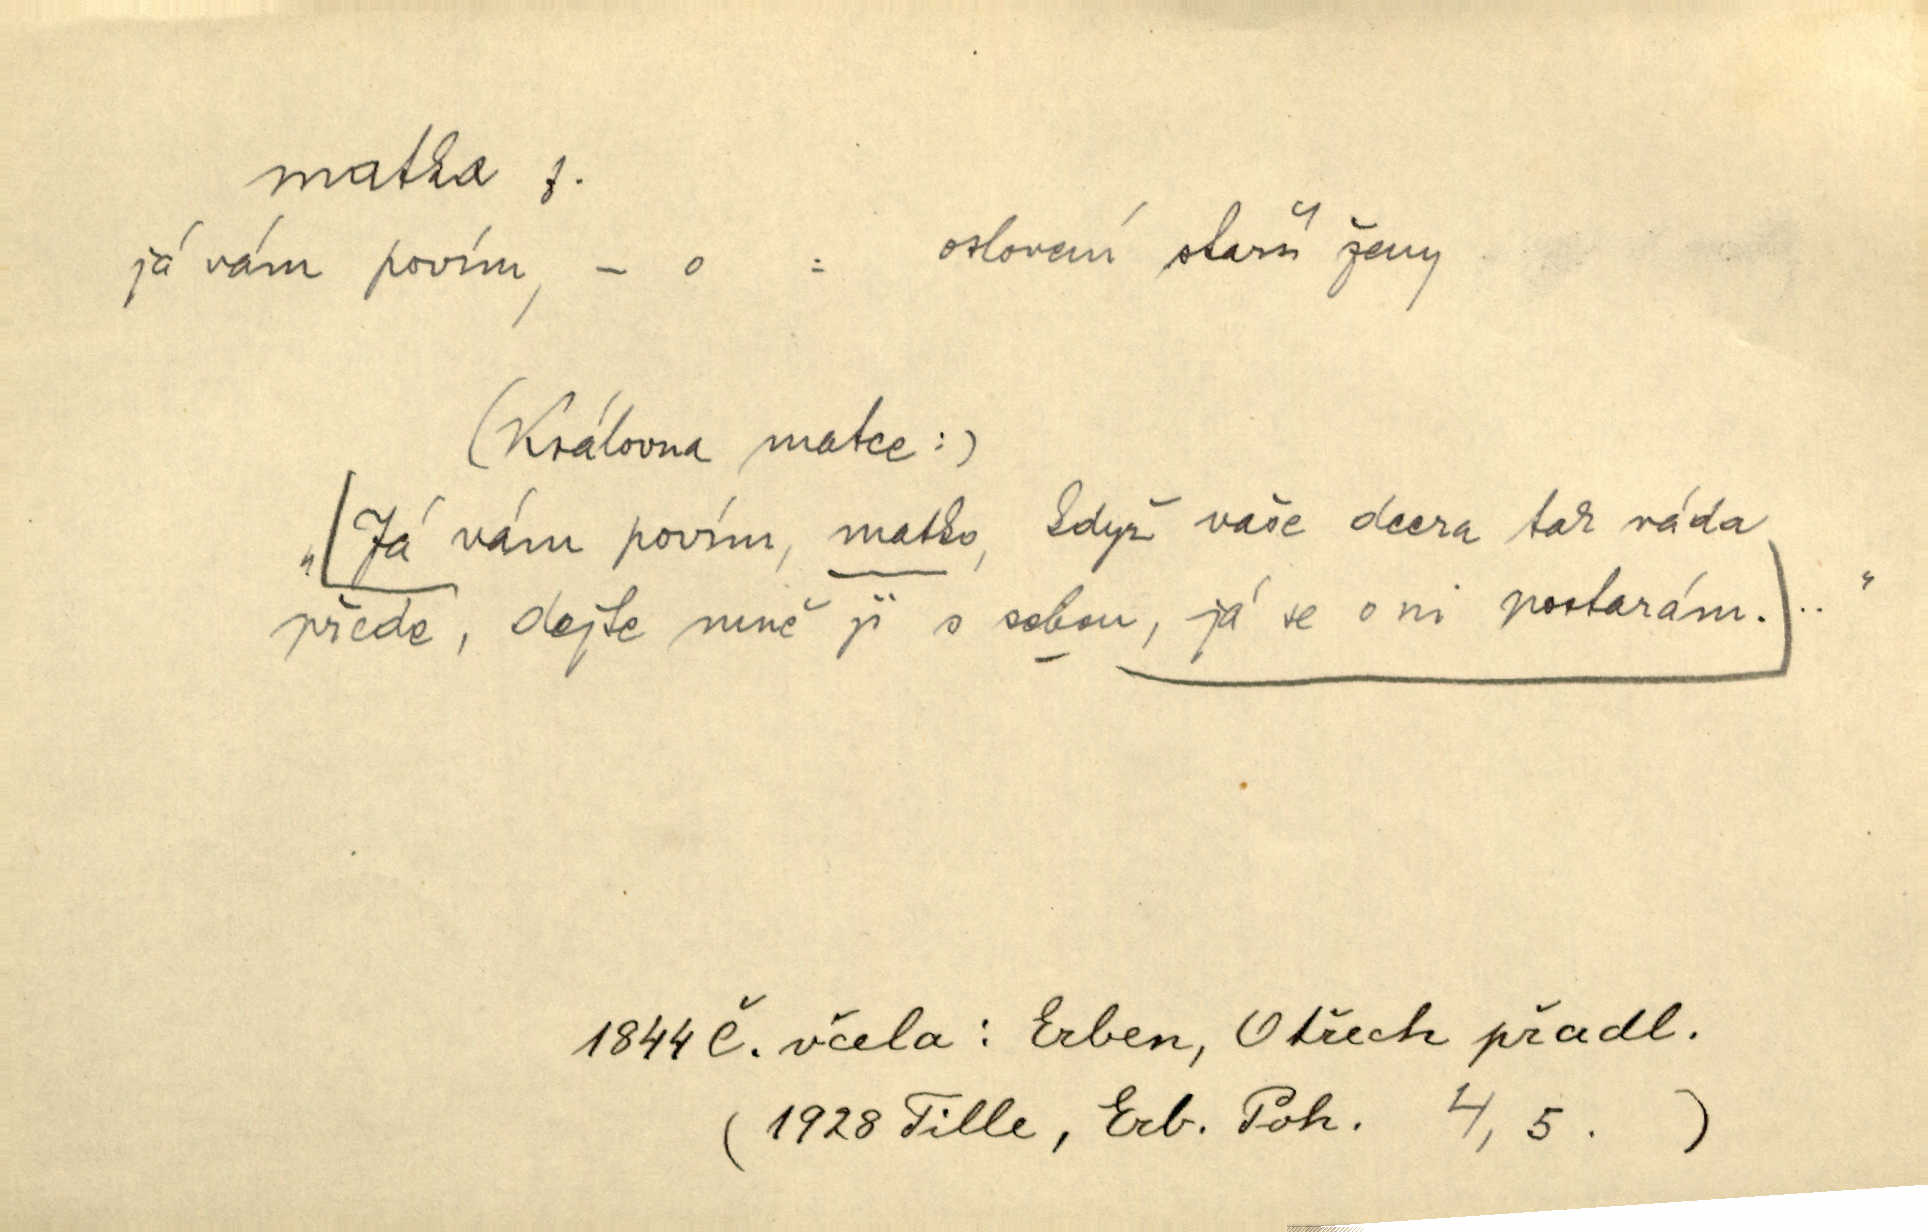 matka f.
já vám povím, – o = oslovení starší ženy
(Královna matce:)
„[Já vám povím, matko, když vaše dcera tak ráda
přede, dejte mně ji s sebou, já se o ni postarám.]..“
1844 Č. včela: Erben, O třech přadl.
(1928 Tille, Erb. Poh. 4, 5. )